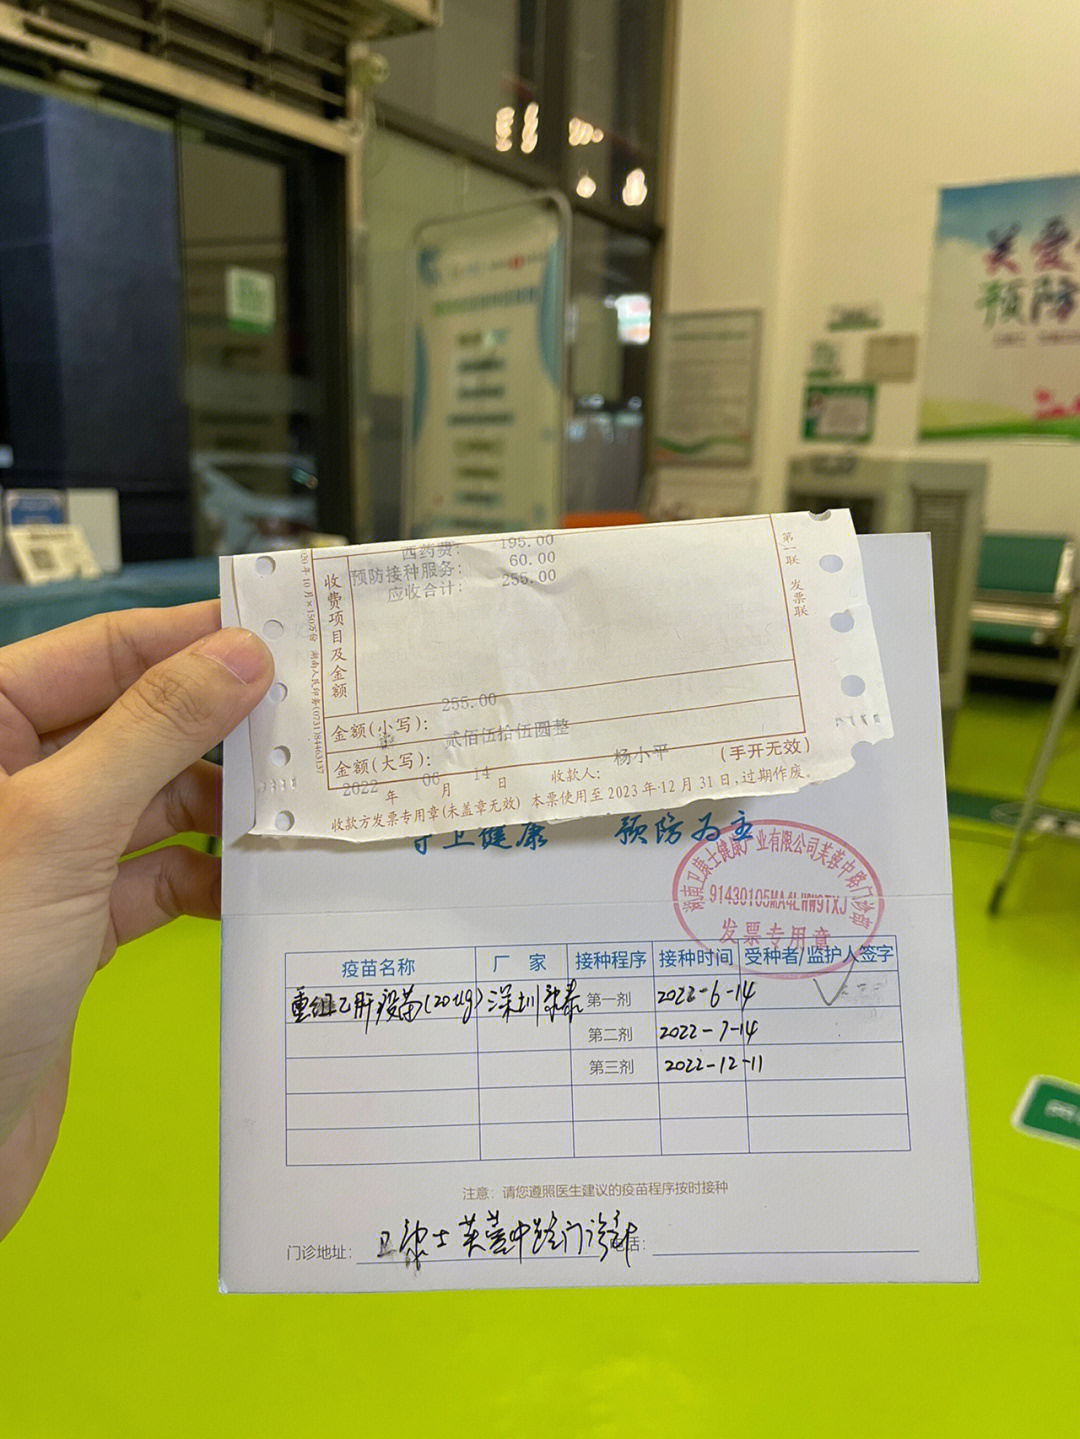 关爱
预防
西药费： 195.00
预防接种服务： 60.00
应收合计： 255.00
收费项目及金额
第一联 发票联
金额(小写)： 255.00
金额(大写)： 贰佰伍拾伍圆整
2022 年 06 月 14 日 收款人： 杨小平 (手开无效)
收款方发票专用章(未盖章无效) 本票使用至2023年12月31日,过期作废。
守卫健康 预防为主
湖南卫康士健康产业有限公司芙蓉中路门诊部
91430105MA4LWW9TXJ
发票专用章
疫苗名称 厂家 接种程序 接种时间 受种者/监护人签字
重组乙肝疫苗(20ug) 深圳康泰 第一剂 2022-6-14 ✓
第二剂 2022-7-14
第三剂 2022-12-11
注意：请您遵照医生建议的疫苗程序按时接种
门诊地址： 卫康士芙蓉中路门诊部 电话：